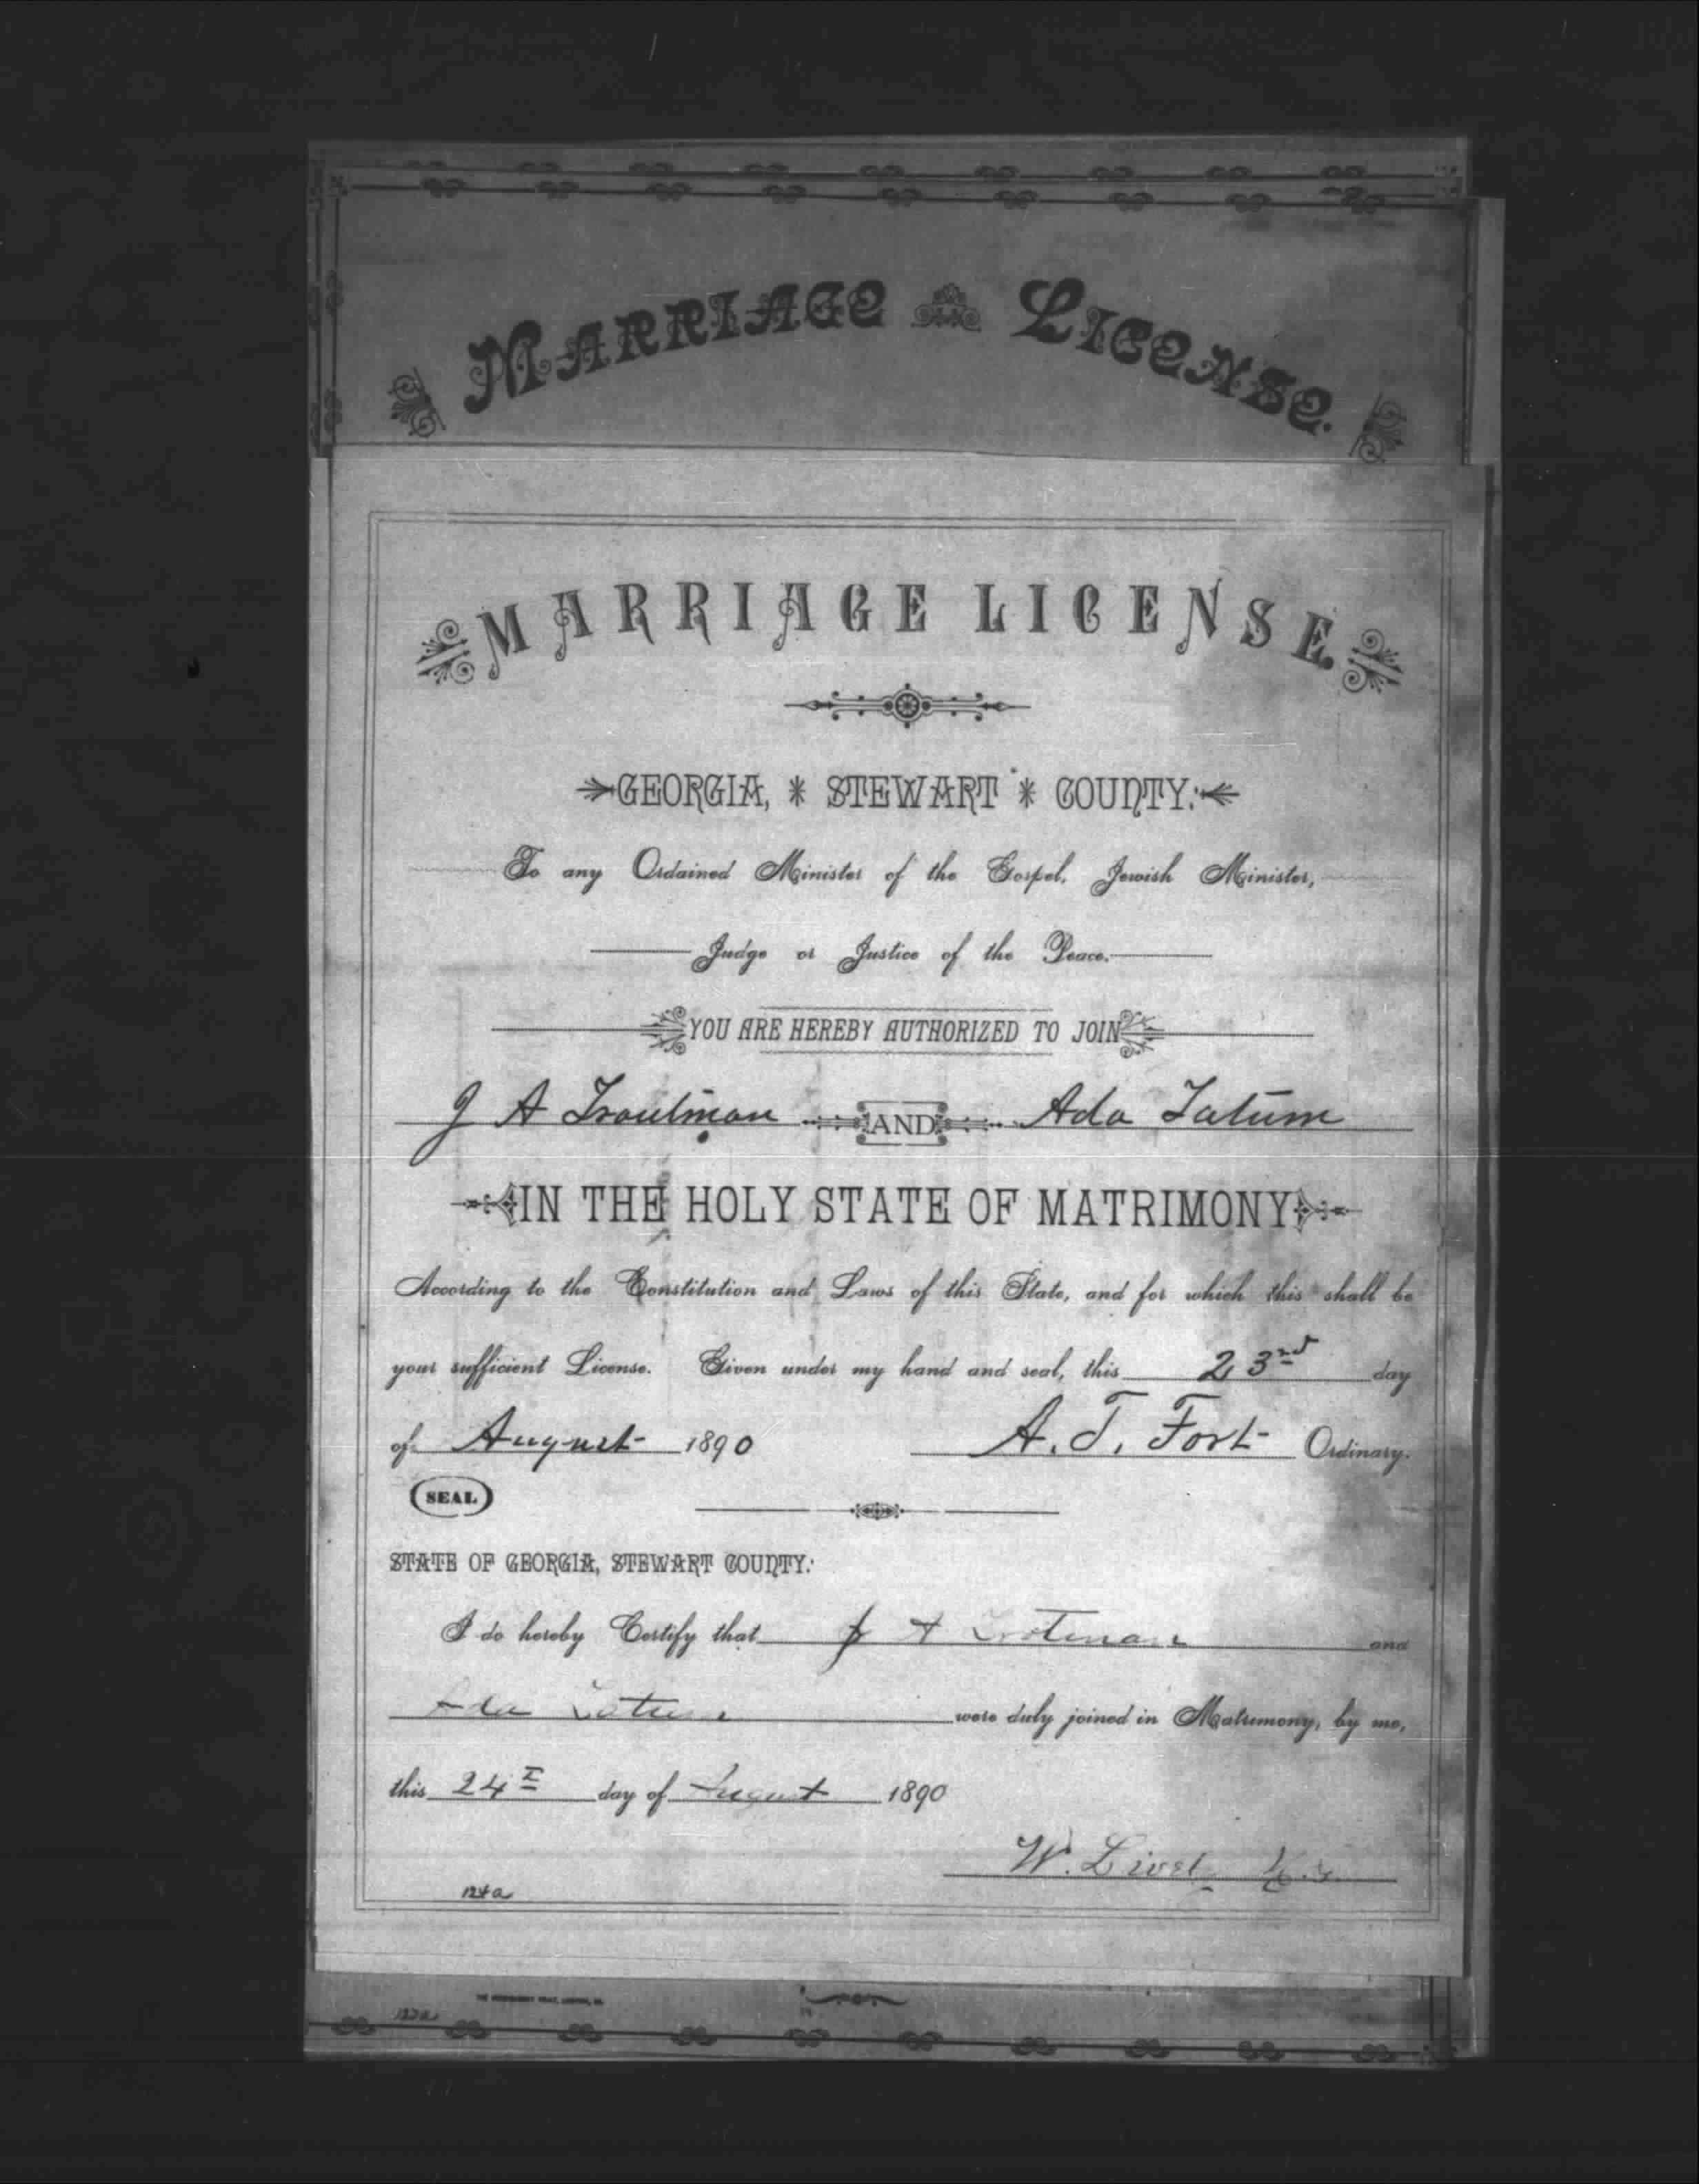 MARRIAGE LICENSE.
MARRIAGE LICENSE.
GEORGIA, * STEWART * COUNTY:
To any Ordained Minister of the Gospel, Jewish Minister,
Judge or Justice of the Peace.
YOU ARE HEREBY AUTHORIZED TO JOIN
J A Troutman AND Ada Tatum
IN THE HOLY STATE OF MATRIMONY
According to the Constitution and Laws of this State, and for which this shall be
your sufficient License. Given under my hand and seal, this 23rd day
of August 1890 A. T. Fort Ordinary.
SEAL
STATE OF GEORGIA, STEWART COUNTY:
I do hereby Certify that J A Trotman and
Ada Tatum were duly joined in Matrimony, by me,
this 24 day of August 1890
W.
124a